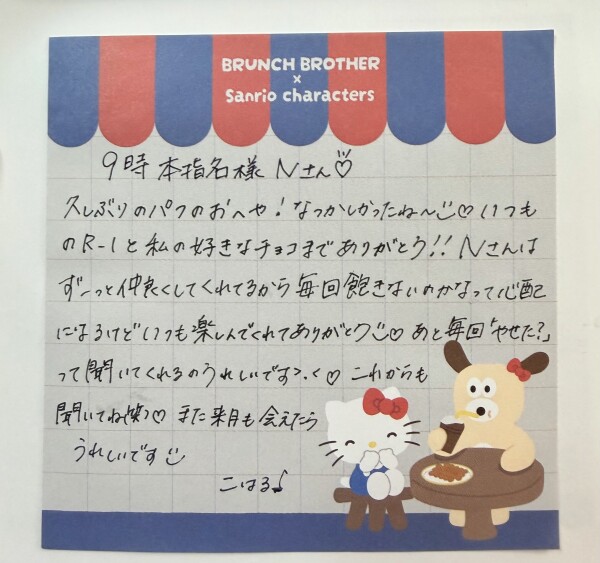 BRUNCH BROTHER
×
Sanrio characters
9時 本指名様 Nさん♡
久しぶりのパフのおへや！なつかしかったね〜☺♡いつも
のR-1と私の好きなチョコまでありがとう!! Nさんは
ずーっと仲良くしてくれてるから毎回飽きないのかなって心配
になるけどいつも楽しんでくれてありがとう☺♡ あと毎回「やせた?」
って聞いてくれるのうれしいです>.<♡ これからも
聞いてね(笑)♡ また来月も会えたら
うれしいです☺
こはる♪